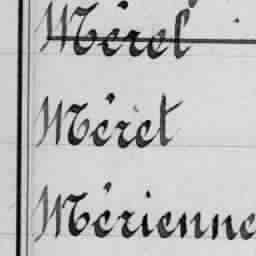 Mérel
Méret
Mérienne